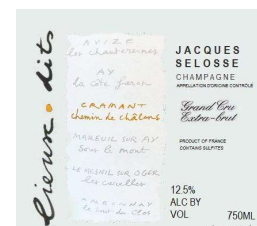 lieux • dits
AVIZE
les chantereines
AY
la côte faron
CRAMANT
chemin de châlons
MAREUIL SUR AY
sous le mont
LE MESNIL SUR OGER
les carelles
AMBONNAY
le bout du clos
JACQUES
SELOSSE
CHAMPAGNE
APPELLATION D'ORIGINE CONTRÔLÉE
Grand Cru
Extra-brut
PRODUCT OF FRANCE
CONTAINS SULFITES
12.5%
ALC BY
VOL
750ML